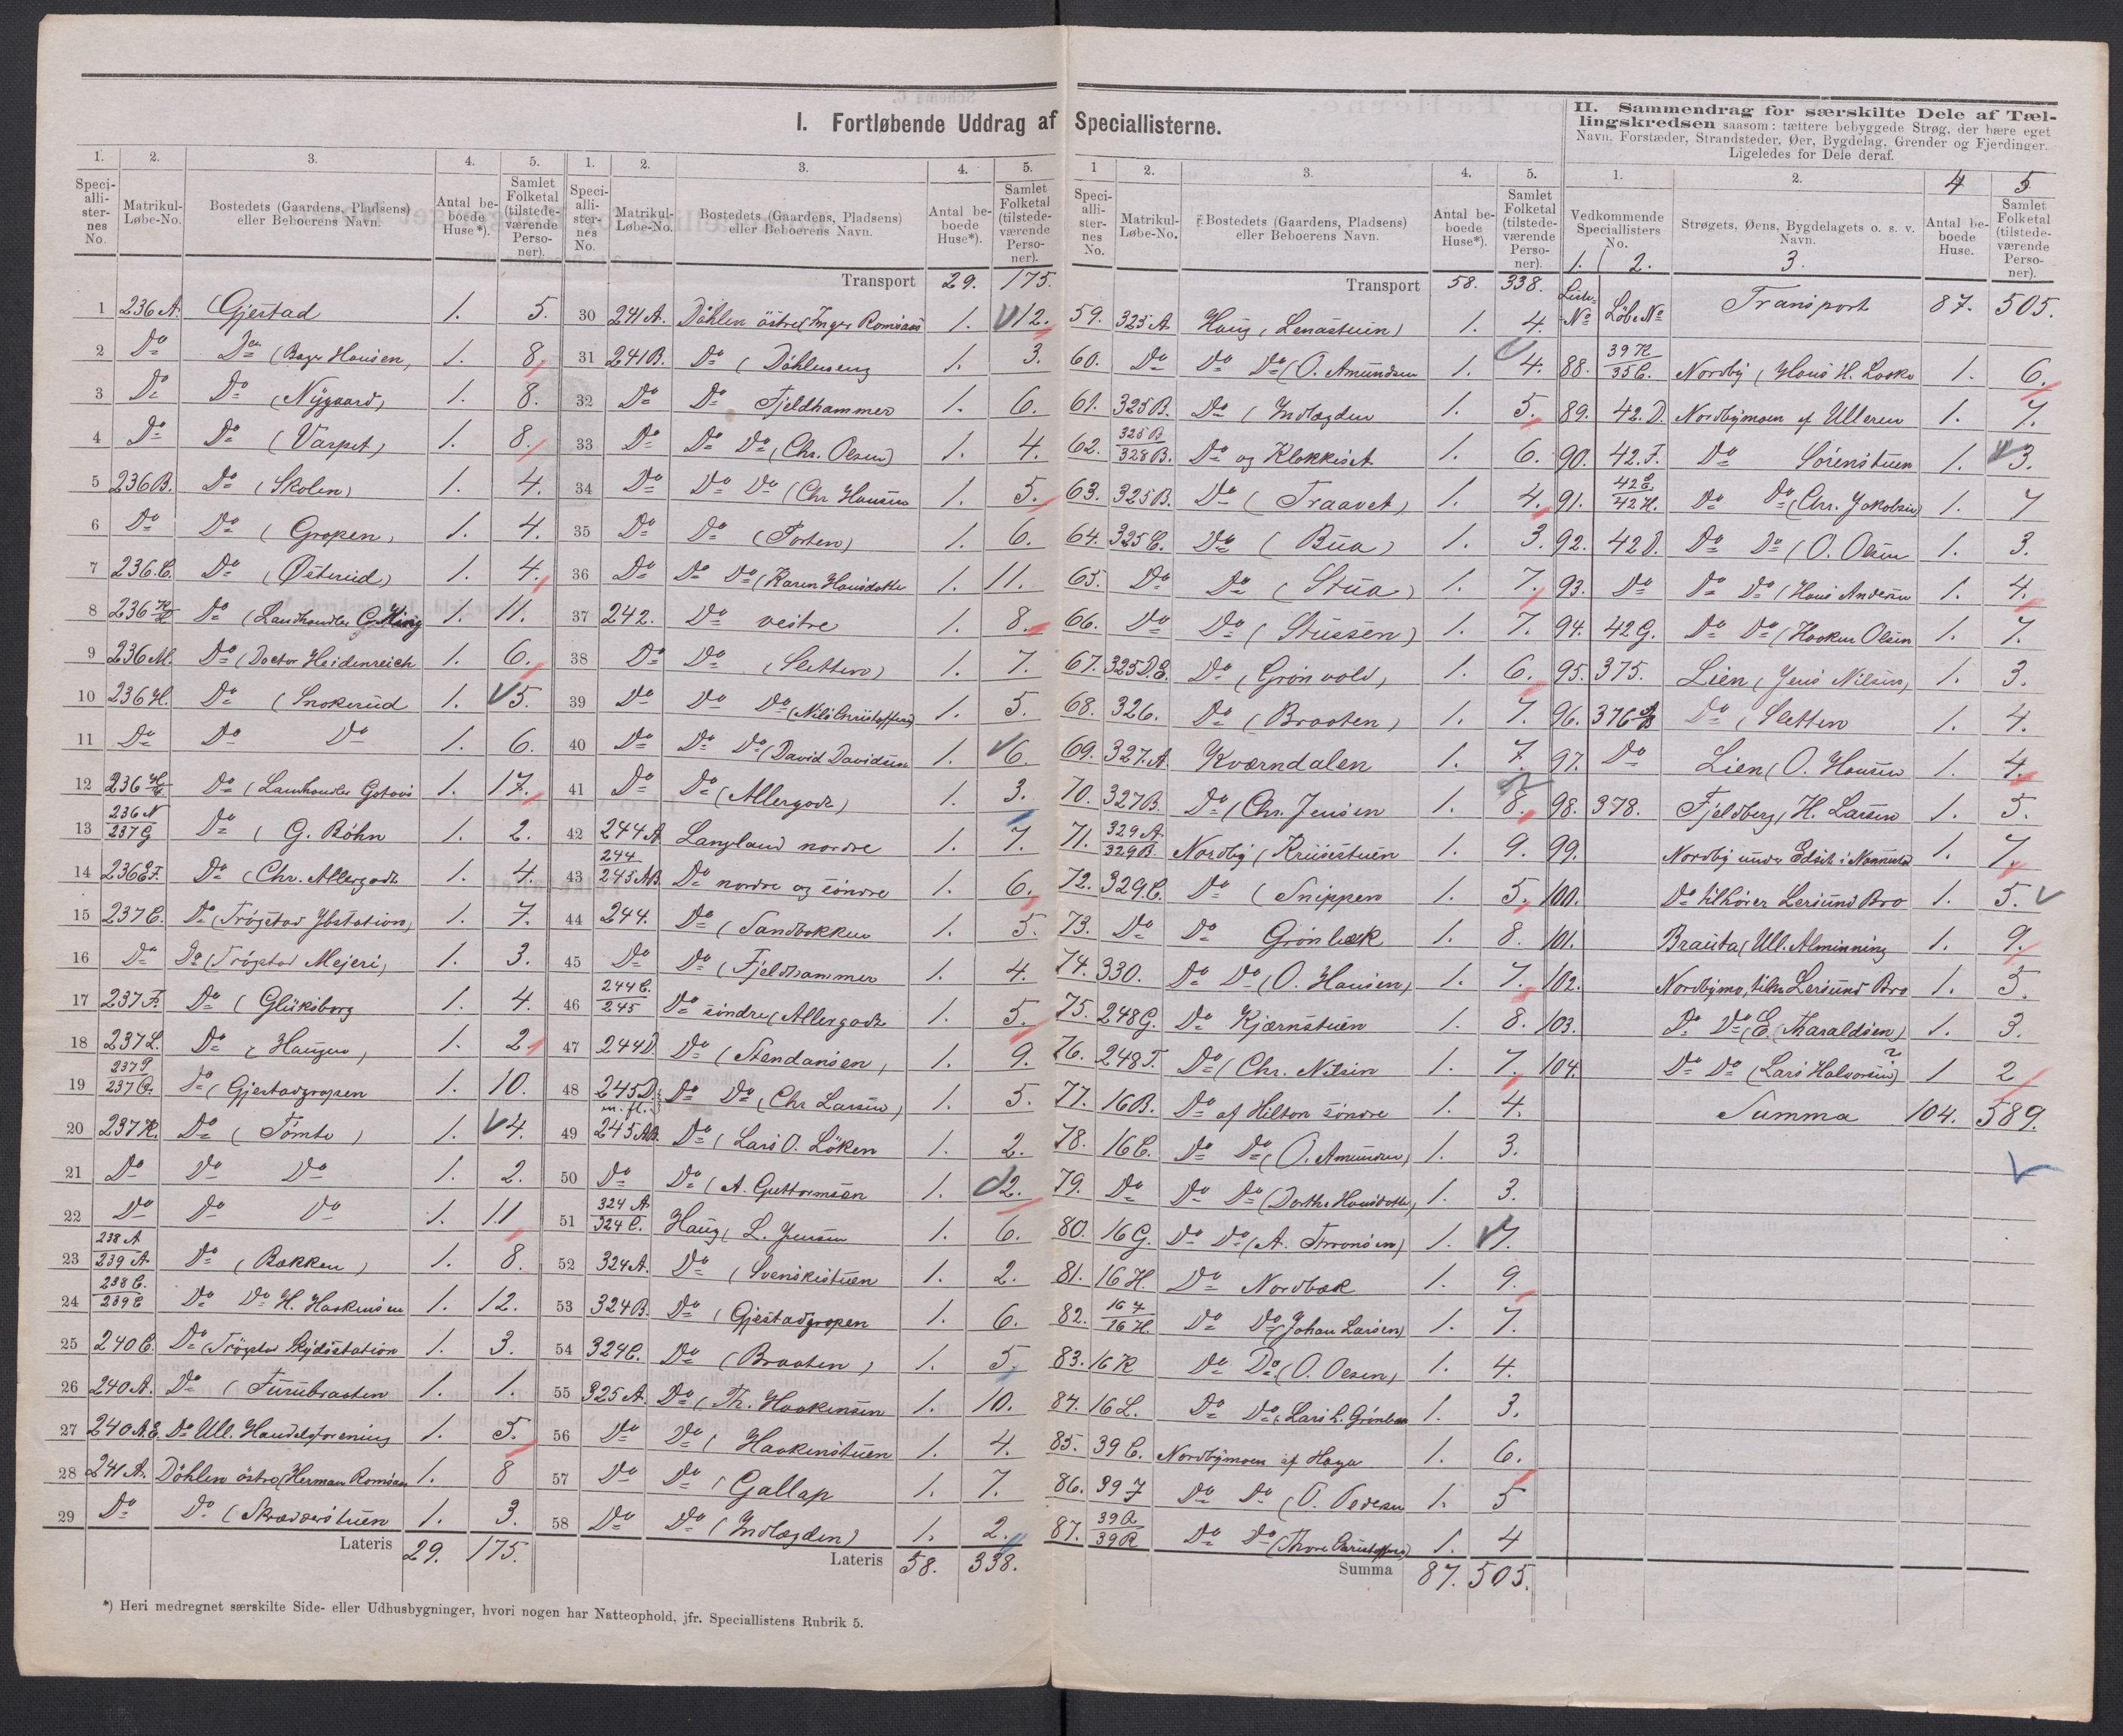 I. Fortløbende Uddrag af Speciallisterne.
1. 2. 3. 4. 5.
Speciallisternes No. Matrikul-Løbe-No. Bostedets (Gaardens, Pladsens) eller Beboerens Navn. Antal beboede Huse*). Samlet Folketal (tilstedeværende Personer).
1 236 A. Gjestad 1. 5.
2 Do Do (Bager Hansen, 1. 8.
3 Do Do (Nygaard) 1. 8.
4 Do Do (Varpet) 1. 8.
5 236 B. Do (Skolen) 1. 4.
6 Do Do (Gropen, 1. 4.
7 236 C. Do (Østerud) 1. 4.
8 236 Do (Landhandler 1. 11.
9 236 M. Do (Doctor Heidenreich 1. 6.
10 236 H. Do (Snokerud 1. 5.
11 Do Do Do 1. 6.
12 236 Do (Landhandler 1. 17.
13 236 N / 237 G Do (G. Böhn 1. 2.
14 236 E F. Do (Chr. Allergodt 1. 4.
15 237 C. Do (Trögstad Ybstation) 1. 7.
16 Do Do (Trögstad Mejeri, 1. 3.
17 237 F. Do (Glüksborg 1. 4.
18 237 L. Do (Haugen, 1. 2
19 237 P / 237 Q. Do (Gjestadgropen 1. 10.
20 237 K. Do (Tömte) 1. 4.
21 Do Do Do 1. 2.
22 Do Do Do 1. 11
23 238 A / 239 A Do (Bakken) 1. 8.
24 238 C. / 239 C Do Do H. Haakensen 1. 12.
25 240 C. Do (Trögstad Skydsstation 1. 3.
26 240 A. Do (Furubraaten 1. 1.
27 240 A.E. Do Ull. Handelsforening 1. 5.
28 241 A. Döhlen östre (Herman Romsaas 1. 8
29 Do Do (Skrædderstuen 1. 3.
Lateris 29. 175.
*) Heri medregnet særskilte Side- eller Udhusbygninger, hvori nogen har Natteophold, jfr. Speciallistens Rubrik 5.
1. 2. 3. 4. 5.
Speciallisternes No. Matrikul-Løbe-No. Bostedets (Gaardens, Pladsens) eller Beboerens Navn. Antal beboede Huse*). Samlet Folketal (tilstedeværende Personer).
Transport 29. 175.
30 241 A. Döhlen östre (Inger Romsaas 1. 12.
31 241 B. Do (Döhleneng 1. 3.
32 Do Do Fjeldhammer 1. 6.
33 Do Do Do (Chr. Olsen) 1. 4.
34 Do Do Do (Chr Hansen 1. 5.
35 Do Do (Torten) 1. 6.
36 Do Do Do (Karen Hansdotter 1. 11.
37 242. Do vestre 1. 8.
38 Do Do (Sletten) 1. 7.
39 Do Do Do (Nils Christoffersen) 1. 5.
40 Do Do Do (David Davidsen 1. 6.
41 Do Do (Allergodt) 1. 3.
42 244 A Langland nordre 1. 7.
43 244 / 245 AB. Do nordre og söndre 1. 6.
44 244. Do (Sandbakken 1. 5.
45 Do Do (Fjeldhammer 1. 4.
46 244 C. / 245 Do söndre (Allergodt 1. 5.
47 244 D. Do (Stendansen, 1. 9.
48 245 D. m. fl. Do Do (Chr Larsen) 1. 5.
49 245 AB. Do (Lars O. Löken 1. 2.
50 Do Do (A. Guttormsen 1. 2.
51 324 A / 324 C. Haug (L. Jensen 1. 6.
52 324 A. Do (Svenskestuen 1. 2.
53 324 B. Do (Gjestadgropen 1. 6.
54 324 C. Do (Braaten) 1. 5.
55 325 A. Do (Th. Haakensen 1. 10.
56 Do Do (Haakenstuen 1. 4.
57 Do Do (Gallap 1. 7.
58 Do Do (Indlagden) 1. 2.
Lateris 58. 338.
1 2. 3. 4. 5.
Speciallisternes No. Matrikul-Løbe-No. Bostedets (Gaardens, Pladsens) eller Beboerens Navn. Antal beboede Huse*). Samlet Folketal (tilstedeværende Personer).
Transport 58. 338.
59. 325 A Haug (Lenastuen) 1. 4.
60. Do Do Do (O. Amundsen 1. 4.
61. 325 B. Do (Indlagden 1. 5.
62. 325 B / 328 B. Do og Klokkeset 1. 6.
63. 325 B. Do (Traavet) 1. 4.
64. 325 C. Do (Bua) 1. 3.
65. Do Do (Stua) 1. 7.
66. Do Do (Stussen) 1. 7.
67. 325 D.E. Do (Grönvold, 1. 6.
68. 326. Do (Braaten) 1. 7.
69. 327. A. Kværndalen 1. 7.
70. 327 B. Do (Chr. Jensen 1. 8.
71. 329 A. / 329 B. Nordby (Kruisestuen 1. 9.
72. 329 C. Do (Snippen 1. 5.
73. Do Do Grönbæk 1. 8.
74. 330. Do Do (O. Hansen, 1. 7.
75. 248 G. Do Kjærnstuen 1. 8.
76. 248 F. Do (Chr. Nilsen 1. 7.
77. 16 B. Do af Hilton söndre 1. 4.
78. 16 C. Do Do (O. Amundsen) 1. 3.
79. Do Do Do (Dorthe Hansdotter, 1. 3.
80. 16 G. Do Do (A. Tronsen) 1. 7.
81. 16 H. Do Nordbæk 1. 9.
82. 16 H. Do Do (Johan Larsen) 1. 7.
83. 16 K Do Do (O. Olsen, 1. 4.
84. 16 L. Do Do (Lars L. Grönbæk 1. 3.
85. 39 C. Nordbymoen af Haga 1. 6.
86. 39 J Do Do (O. Pedersen 1. 5
87. 39 Q / 39 R Do Do (Thore Christoffersen) 1. 4
Summa 87. 505.
II. Sammendrag for særskilte Dele af Tællingskredsen saasom: tættere bebyggede Strøg, der bære eget Navn, Forstæder, Strandsteder, Øer, Bygdelag, Grender og Fjerdinger. Ligeledes for Dele deraf.
1. 2. 4 5
Vedkommende Speciallisters No. Strøgets, Øens, Bygdelagets o. s. v. Navn. Antal beboede Huse. Samlet Folketal (tilstedeværende Personer).
1. 2. 3.
Liste No Löbe No Transport 87. 505.
88. 39 K / 35 C. Nordby (Hans H. 1. 6.
89. 42. D. Nordbymoen af Ulleren 1. 7.
90. 42. F. Do Sörenstuen 1. 3.
91. 42 E. / 42 H. Do Do (Chr. Jakobsen) 1. 7
92. 42 D. Do Do (O. Olsen 1. 3.
93. Do Do Do (Hans Andersen 1. 4.
94. 42 G. Do Do (Haaken Olsen 1. 7.
95. 375. Lien (Jens Nilsen, 1. 3.
96. 376 Do (Sletten 1. 4.
97. Do Lien (O. Hansen 1. 4.
98. 378. Fjeldberg, H. Larsen 1. 5.
99. Nordby under Edsit i Nannestad 1. 7.
100. Do tilhörer Lersund Bro 1. 5.
101. Brauta (Ull. Alminning 1. 9.
102. Nordbymo, tilh. Lersund Bro 1. 5.
103. Do Do (E. Haraldsen) 1. 3.
104. Do Do (Lars Halvorsen) ? 1 2
Summa 104. 589.